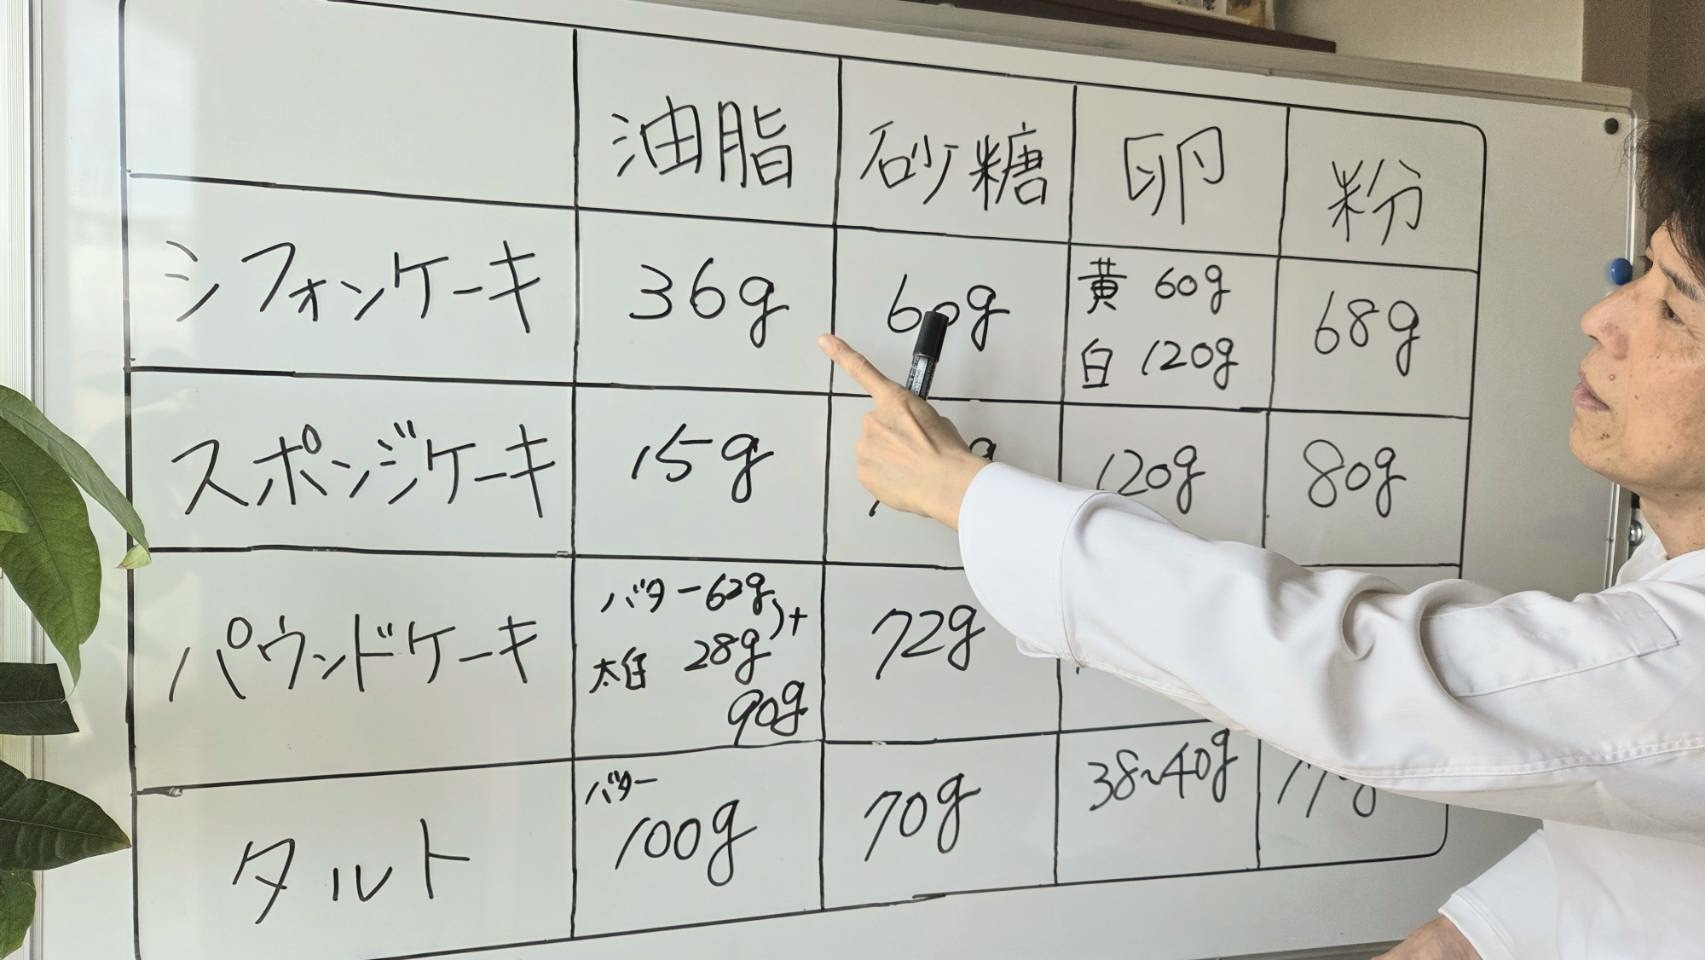 油脂 砂糖 卵 粉
シフォンケーキ 36g 60g 黄 60g 68g
白 120g
スポンジケーキ 15g 120g 80g
パウンドケーキ バター62g 72g
太白 28g )+
90g
タルト バター 100g 70g 38~40g